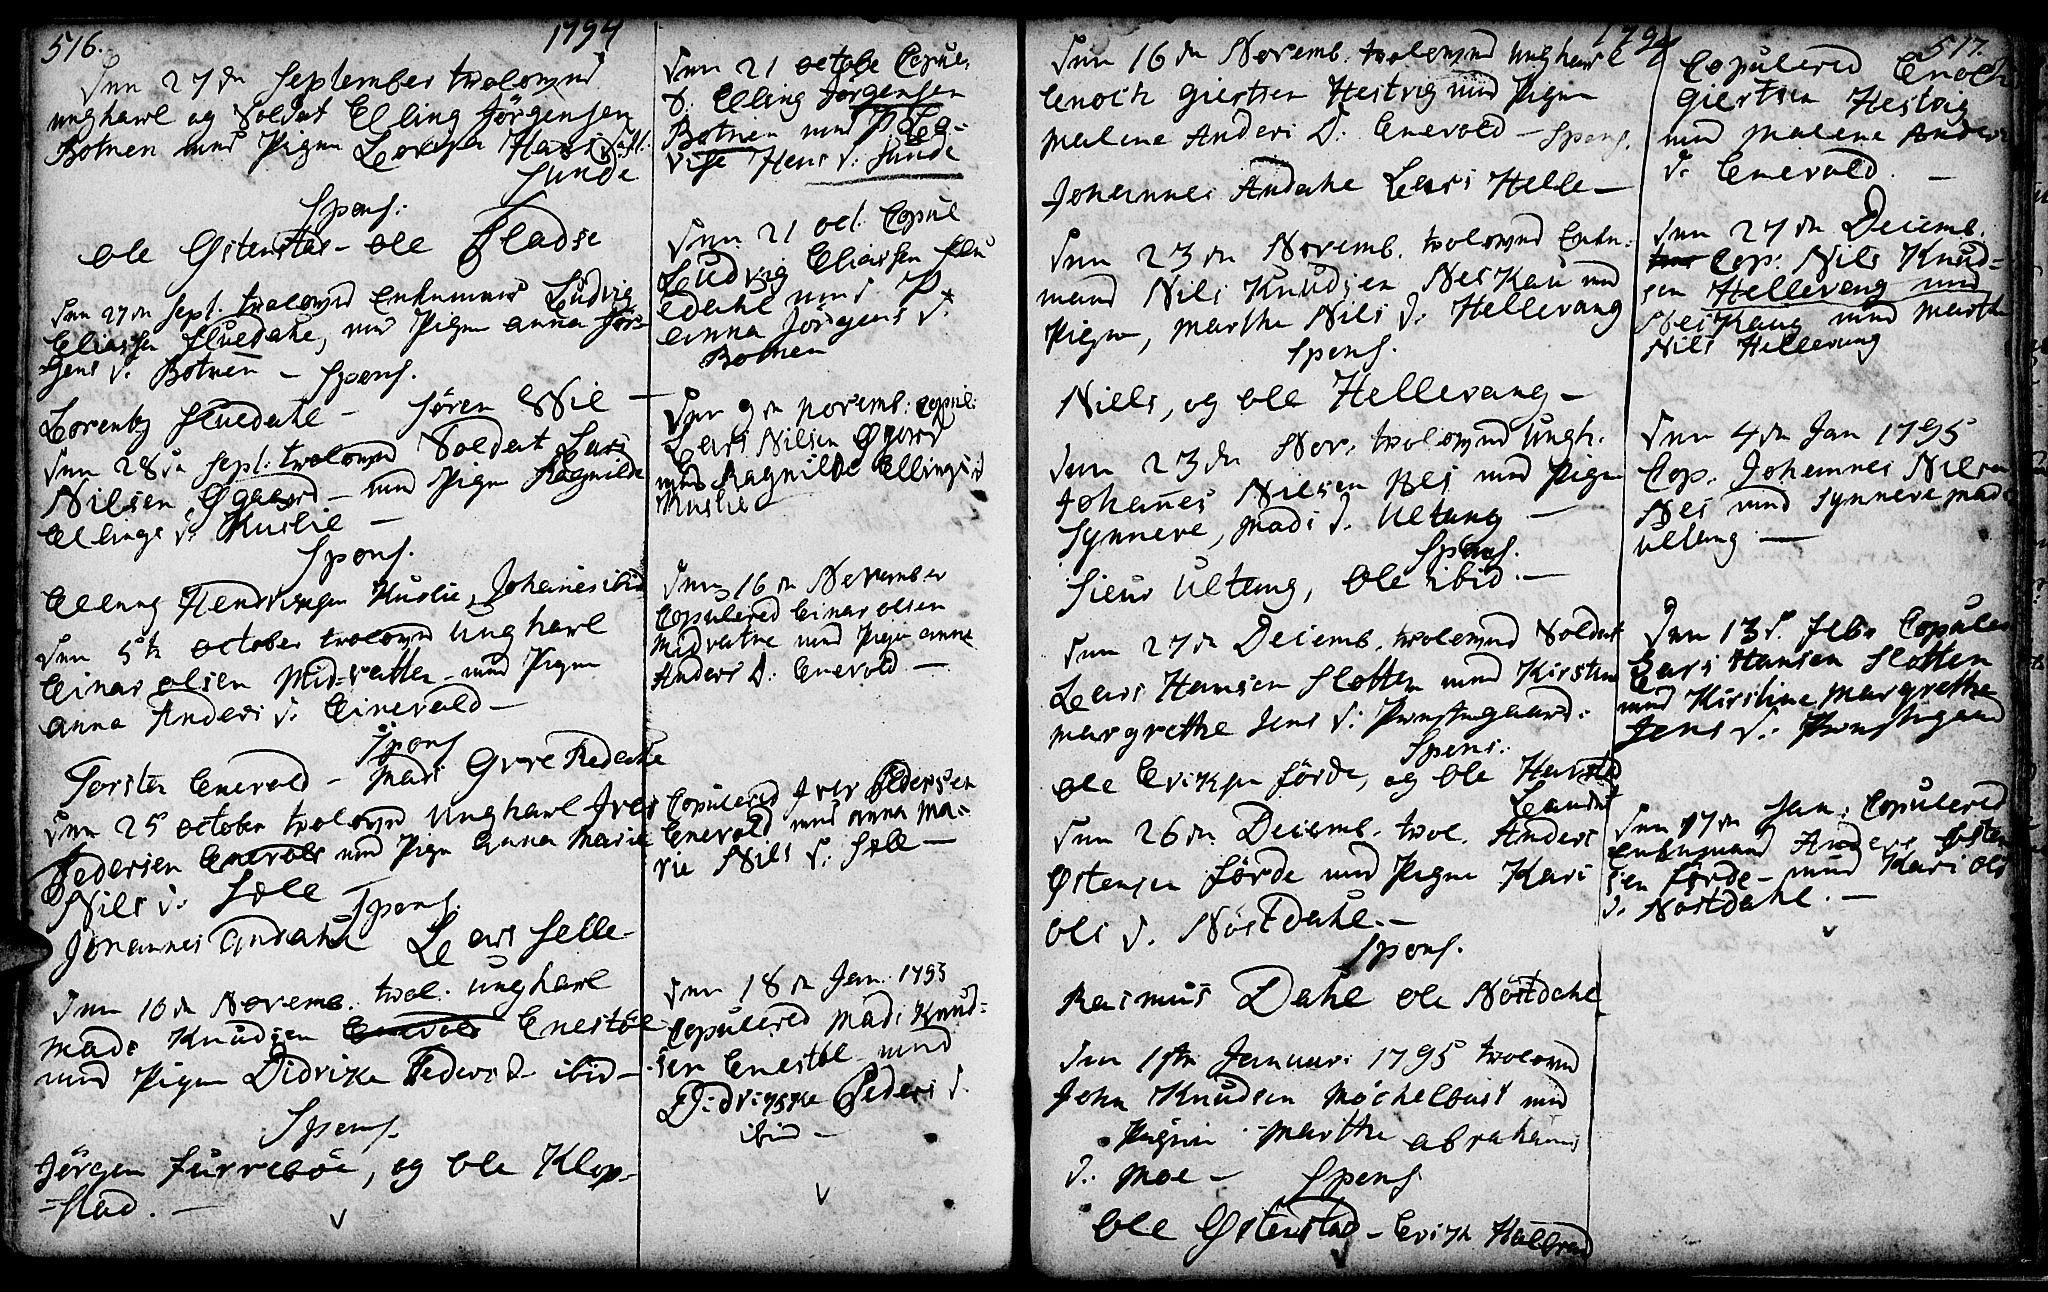 516.
1794
Den 27de September trolowed
ungkarl og Soldat Elling Jørgensen
Botnen med Pigen Hans
Sunde
Spons:
Ole Østenstad - Ole Fladse
Den 27de Sept. trolowed Enkemand Ludvig
Eliassen Fluedahl, med Pigen Anna Jør-
gens D. Botnen - Spons.
Lorentz Fluedahl - Søren
Den 28de Sept. trolowed Soldat Lars
Nilsen Øgaard - med Pigen Ragnilde
Ellings D. Huslie -
Spons.
Elling Huslie, Johanes ibid
Den 5te October trolowed Ungkarl
Einar Olsen Midvatten - med Pigen
Anna Anders D. Einevald -
Spons
Torsten Enevold - Mads Redahl
Den 25 October trolowed Ungkarl Iver
Pedersen Enevold med Pigen Anna Marie
Nils D. Sæle
Spons.
Johannes Andahl Lars Selle -
Den 16de Novemb. trol. ungkarl
Mads Knudsen Enevold Enestøl
med Pigen Didrike Peders D. ibid -
Spons.
Jørgen Furrebøe, og Ole Klop-
stad. -
Den 21 Octobr Copul.
S. Elling Jørgensen
Botnen med P.
Hans D. Sunde
Den 21 Oct. Copul
Ludvig Eliassen Flu
edahl med P.
Anna Jørgens D.
Botnen
Den 9de Novemb. Copul.
Lars Nilsen Øgaard
med Ragnilde Ellings D
Huslie
Den 16de November
Copulered Einar Olsen
Midvatne med Pigen Anna
Anders D. Enevold -
Copulered Iver Pedersen
Enevold med Anna Ma-
rie Nils D. Sele -
Den 18de Jan. 1795
Copulered Mads Knud-
sen Enestøl med
Didrikke Peders D.
ibid -
1794
517.
Den 16de Novemb. trolowed Ungkarl
Enoch Giertsen Hestvig med Pigen
Malene Anders D. Enevold - Spons.
Johannes Andahl Lars Helle -
Den 23de Novemb. trolowed Enke-
mand Nils Knudsen med
Pigen, Marthe Nils D. Hellevang
Spons.
Niels, og Ole Hellevang -
Den 23de Nov. trolowed Ungk.
Johañes Nielsen Nes med Pigen
Synneve, Mads D. Ultang -
Spons.
Sieur Ultang, Ole ibid. -
Den 27de Decemb. trolowed Soldat
Lars Hansen Slotten med Kirstine
Margrethe Jens D. Prestegaard.
Spons.
Ole Eriksen Førde, og Ole
Den 26de Decemb. trol. Anders
Østensen Førde med Pigen Kari
Ols D. Nøstdahl. -
Spons.
Rasmus Dahl Ole Nøstdahl
Den 1ste Januari 1795 trolowed
John Knudsen Møchelbust med
Pigen Marthe Abrahams
D. Moe - Spons
Ole Østenstad - Erich
Copulered Enoch
Giertsen Hestvig
med Malene Anders
D. Enevold. -
Den 27de Decemb.
Cop. Nils Knud-
sen Hellevang med
med Marthe
Nils Hellevang
Den 4de Jan 1795
Cop. Johannes Nilsen
Nes med Synneve Mads
Ultang -
Den 13d. Febr Copulered
Lars Hansen Slotten
med Kirstine Margrethe
Jens D. Prestegaard
Den 17de Jan. Copulered
Enkemand Anders Østen
sen Førde - med Kari Ols
D. Nøstdahl. -